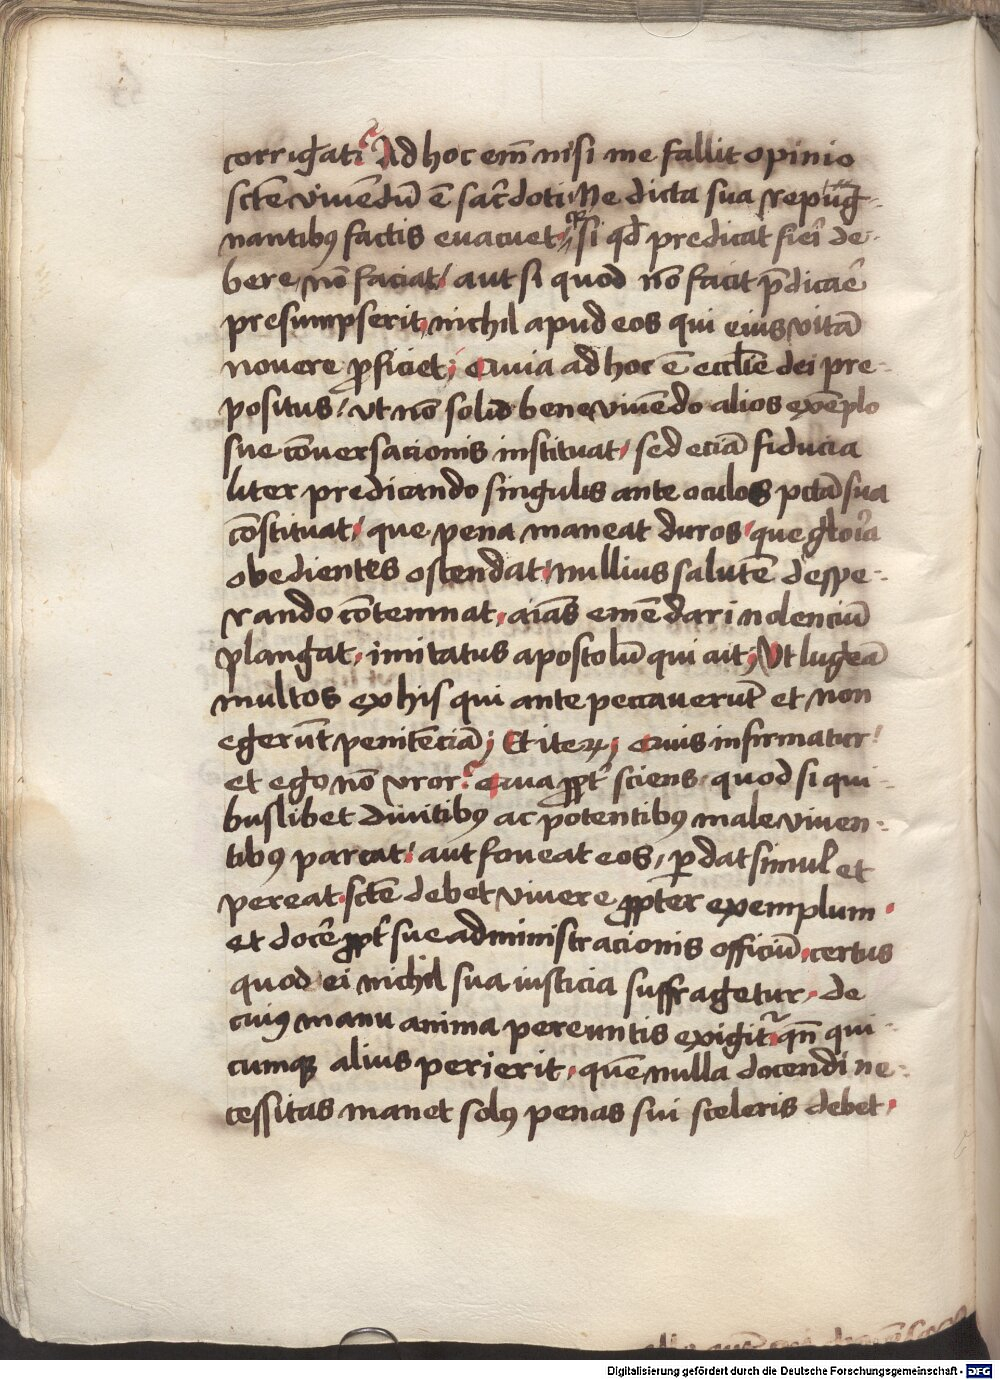 corrigat? Ad hoc em̄ nisi me fallit opinio
sc̄te viuēdū ē sac̄doti / Ne dicta sua repūg-
nantibꝰ factis euacuet / q̄ si qd̄ predicat fieri de-
bere / nō faciat / aut si quod nō facit p̄dicare
presumpserit / nichil apud eos qui eius vitā
nouere ꝓficiet; Quia ad hoc ē eccl̄ie dei pre-
positus / vt nō solū bene viuēdo alios exēplo
sue cōuersacionis instituat / sed eciā fiducia
liter predicando singulis ante oculos pctā sua
cōstituat / que pena maneat duros / que gloria
obedientes ostendat / nullius salutē despe-
rando cōtemnat / aīas emēdari nolenciū
plangat / imitatus apostolū qui ait; Vt lugeā
multos ex his qui ante peccauerūt et non
egerūt penitēciā; Et iteꝝ; Quis infirmatur /
et ego nō vror? Quapropt̄ sciens / quod si qui-
buslibet diuitibꝰ ac potentibꝰ male viuen-
tibꝰ parcat / aut foueat eos / ꝑdat simul et
pereat / sc̄te debet viuere ꝓpter exemplum /
et docē ꝓpt̄ sue administracionis officiū / certus
quod ei nichil sua iusticia suffragetur / de
cuiꝰ manu anima pereuntis exigit̄ / qn̄ qui-
cumqꝫ alius perierit / quē nulla docendi ne-
cessitas manet solꝰ penas sui sceleris debet /
Digitalisierung gefördert durch die Deutsche Forschungsgemeinschaft - DFG